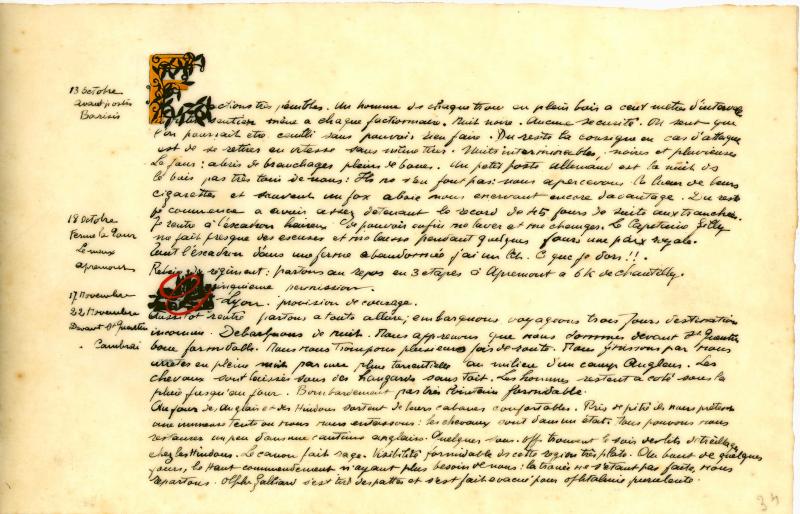 13 Octobre
avant postes
Barisis
Factions très pénibles. Un homme de chaque trou en plein bois a cent mètres d'intervalle
sentier mène a chaque factionnaire. Nuit noire. Aucune sécurité. On sent que
l'on pourrait être cueilli sans pouvoir rien faire. Du reste la consigne en cas d'attaque
est de se retirer en vitesse sans même tirer. Nuits interminables, noires et pluvieuses
Le jour : abris de branchages pleins de boue. Un petit poste allemand est la nuit ds
le bois pas très loin de nous : Ils ne s'en font pas : nous apercevons la lueur de leurs
cigarettes et souvent un fox aboie nous enervant encore davantage. Du reste
je commence a avoir assez détenant le record de 45 jours de suite aux tranchées.
Je rentre à l'escadron heureux de pouvoir enfin me laver et me changer. Le Capitaine Gilly
me fait presque des excuses et me laisse pendant quelques jours une paix royale.
18 Octobre
Ferme la Tour
Lemeux
apremont
tout l'escadron dans une ferme abandonnée j'ai un lit. C que je dors !!.
Relève du régiment : partons au repos en 3 étapes à Apremont à 6 k de Chantilly.
Cinquième permission.
Lyon. provision de courage.
17 Novembre
22 Novembre
Devant St Quentin
Cambrai
Aussitot rentré partons a toute allure, embarquons voyageons trois jours destination
inconnue. Debarquons de nuit. Nous apprenons que nous sommes devant St Quentin
boue formidable. Nous nous trompons plusieurs fois de route. Nous finissons par nous
arreter en pleine nuit par une pluie torrentielle au milieu d'un camp Anglais. Les
chevaux sont laissés sous des hangards sans toit. Les hommes restent a coté sous la
pluie jusqu'au jour. Bombardement pas très lointain formidable.
Au jour des Anglais et des Hindous sortent de leurs cabanes confortables. Pris de pitié ils nous prêtent
une immense tente ou nous nous entassons : les chevaux sont dans un état. Nous pouvons nous
restaurer un peu dans une cantine anglaise. Quelques sous-off. trouvent le soir des lits de treillage
chez les Hindous. Le canon fait rage. Visibilité formidable de cette region très plate. Au bout de quelques
jours, le Haut commandement n'ayant plus besoin de nous : la trouée ne s'étant pas faite, nous
repartons. Galliard s'est tiré des pattes et s'est fait évacué pour ophtalmie purulente.
34